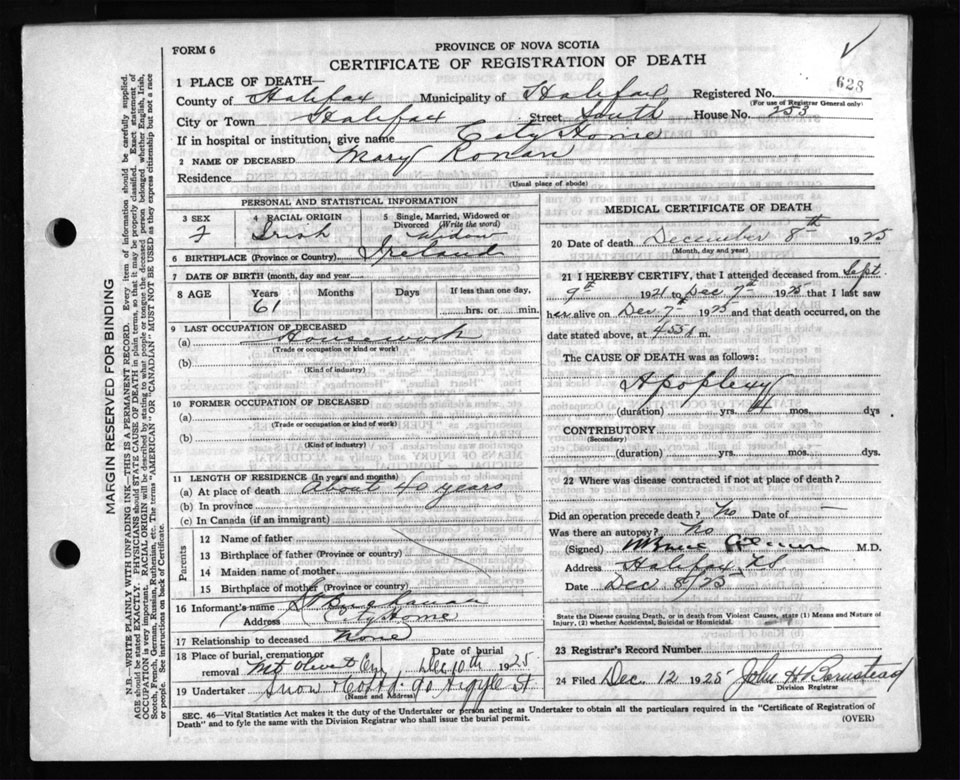 FORM 6
PROVINCE OF NOVA SCOTIA
CERTIFICATE OF REGISTRATION OF DEATH
628
1 PLACE OF DEATH—
County of Halifax Municipality of Halifax Registered No.
(For use of Registrar General only)
City or Town Halifax Street South House No. 253
If in hospital or institution, give name City Home
2 NAME OF DECEASED Mary Ronan
Residence
(Usual place of abode)
PERSONAL AND STATISTICAL INFORMATION
3 SEX 4 RACIAL ORIGIN 5 Single, Married, Widowed or Divorced (Write the word)
F Irish Widow
6 BIRTHPLACE (Province or Country) Ireland
7 DATE OF BIRTH (month, day and year)
8 AGE Years Months Days If less than one day,
61 hrs. or min.
9 LAST OCCUPATION OF DECEASED
(a) Housework
(Trade or occupation or kind or work)
(b)
(Kind of industry)
10 FORMER OCCUPATION OF DECEASED
(a)
(Trade or occupation or kind or work)
(b)
(Kind of industry)
11 LENGTH OF RESIDENCE (In years and months)
(a) At place of death About 40 years
(b) In province
(c) In Canada (if an immigrant)
Parents
12 Name of father
13 Birthplace of father (Province or country)
14 Maiden name of mother
15 Birthplace of mother (Province or country)
16 Informant's name
Address City Home
17 Relationship to deceased None
18 Place of burial, cremation or removal Mt Olivet Cem Date of burial Dec 10th 1925
19 Undertaker Snow & Co Ltd 90 Argyle St
(Name and Address)
MEDICAL CERTIFICATE OF DEATH
20 Date of death December 8th 1925
(Month, day and year)
21 I HEREBY CERTIFY, that I attended deceased from Sept
9th 1921 to Dec 7th 1925 that I last saw
her alive on Dec 7th 1925 and that death occurred, on the
date stated above, at m.
The CAUSE OF DEATH was as follows:
Apoplexy
(duration) yrs. 4 mos. dys
CONTRIBUTORY
(Secondary)
(duration) yrs. mos. dys.
22 Where was disease contracted if not at place of death?
Did an operation precede death? No Date of —
Was there an autopsy? No
(Signed) M.D.
Address Halifax NS
Date Dec 8/25
State the Disease causing Death, or in death from Violent Causes, state (1) Means and Nature of
Injury, (2) whether Accidental, Suicidal or Homicidal.
23 Registrar's Record Number
24 Filed Dec. 12 1925 John H Barnstead
Division Registrar
SEC. 46—Vital Statistics Act makes it the duty of the Undertaker or person acting as Undertaker to obtain all the particulars required in the "Certificate of Registration of
Death" and to fyle the same with the Division Registrar who shall issue the burial permit.
(OVER)
MARGIN RESERVED FOR BINDING
N.B.—WRITE PLAINLY WITH UNFADING INK—THIS IS A PERMANENT RECORD. Every item of information should be carefully supplied.
AGE should be stated EXACTLY. PHYSICIANS should STATE CAUSE OF DEATH in plain terms, so that it may be properly classified. Exact statement of
OCCUPATION is very important. RACIAL ORIGIN will be described by stating to what people or tongue the deceased person belonged whether English, Irish,
Scotch, French, German, Russian, Ruthenian, etc. The terms "AMERICAN" OR "CANADIAN" MUST NOT BE USED as they express citizenship but not a race
or people. See instructions on back of Certificate.